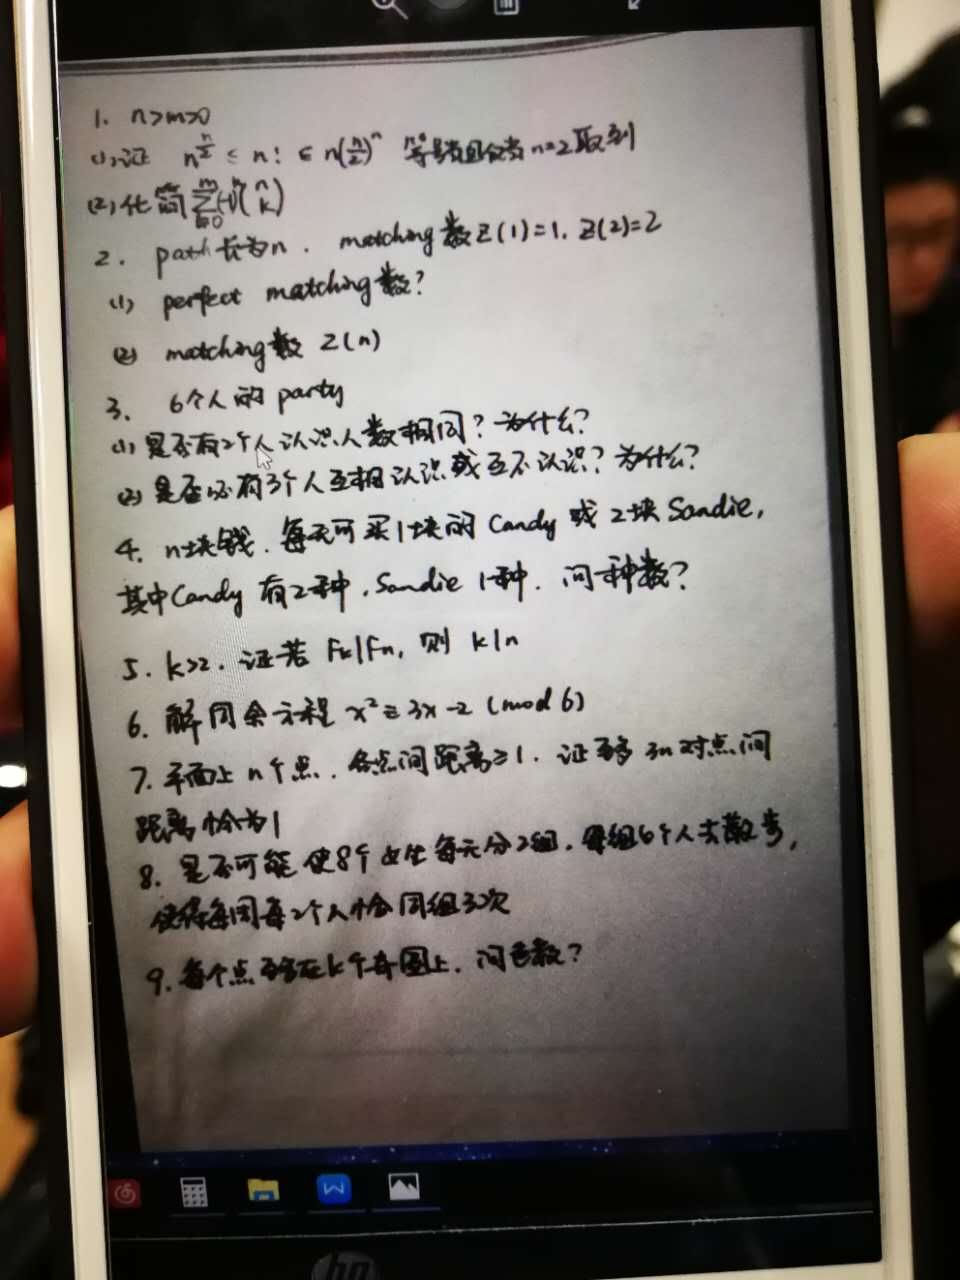 1. n>m>0
(1)证 n^{n/2} ≤ n! ≤ n(n/2)^n 等号当且仅当n=2取到
(2)化简 \sum_{k=0}^{m}(-1)^k\binom{n}{k}
2. path 长为n. matching数Z(1)=1. Z(2)=2
(1) perfect matching数?
(2) matching数 Z(n)
3. 6个人的party
(1) 是否有2个人认识人数相同? 为什么?
(2) 是否必有3个人互相认识或互不认识? 为什么?
4. n块钱. 每天可买1块的Candy或2块Sandie,
其中Candy有2种, Sandie 1种. 问种数?
5. k>2. 证若 Fk|Fn, 则 k|n
6. 解同余方程 x²≡3x-2 (mod 6)
7. 平面上n个点. 各点间距离≥1. 证至多3n对点间
距离恰为1
8. 是否可能使8个女生每天分2组. 每组6个人去散步,
使得每周每2个人恰同组3次
9. 每个点至多在k个奇圈上. 问色数?
hp